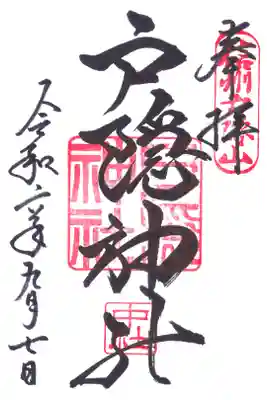 奉拝
戸隠神社
中社
令和六年九月七日